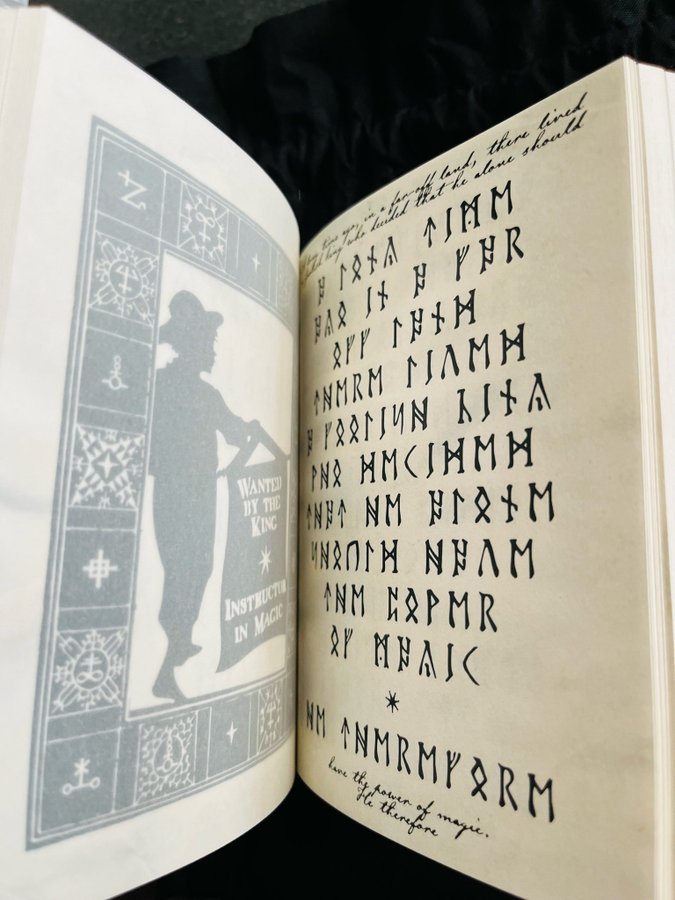 long time ago, in a far-off land, there lived
foolish king who decided that he alone should
ᚨ ᛚᛟᚾᚷ ᛏᛁᛗᛖ
ᚨᚷᛟ ᛁᚾ ᚨ ᚠᚨᚱ
ᛟᚠᚠ ᛚᚨᚾᛞ
ᛏᚺᛖᚱᛖ ᛚᛁᚡᛖᛞ
ᚨ ᚠᛟᛟᛚᛁᛋᚺ ᚴᛁᚾᚷ
ᚹᚺᛟ ᛞᛖᚲᛁᛞᛖᛞ
ᛏᚺᚨᛏ ᚺᛖ ᚨᛚᛟᚾᛖ
ᛋᚺᛟᚢᛚᛞ ᚺᚨᚡᛖ
ᛏᚺᛖ ᛈᛟᚹᛖᚱ
ᛟᚠ ᛗᚨᚷᛁᚲ
ᚺᛖ ᛏᚺᛖᚱᛖᚠᛟᚱᛖ
have the power of magic.
He therefore
WANTED
BY THE
KING
INSTRUCTOR
IN MAGIC